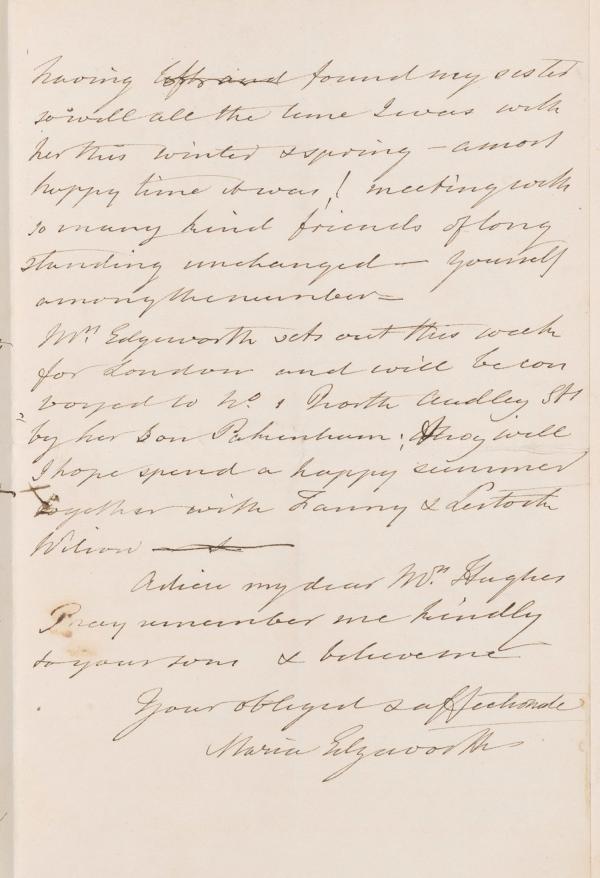 having found my sister
so well all the time I was with
her this winter & spring – a most
happy time it was! meeting with
so many kind friends of long
standing unchanged – yourself
among the number –
Mrs Edgeworth sets out this week
for London and will be con
voyed to No 1 North Audley St
by her Son Pakenham; they will
I hope spend a happy summer
together with Fanny & Lestock
Wilson —
Adieu my dear Mrs Hughes
Pray remember me kindly
to your son & believe me
Your obliged & affectionate
Maria Edgeworth